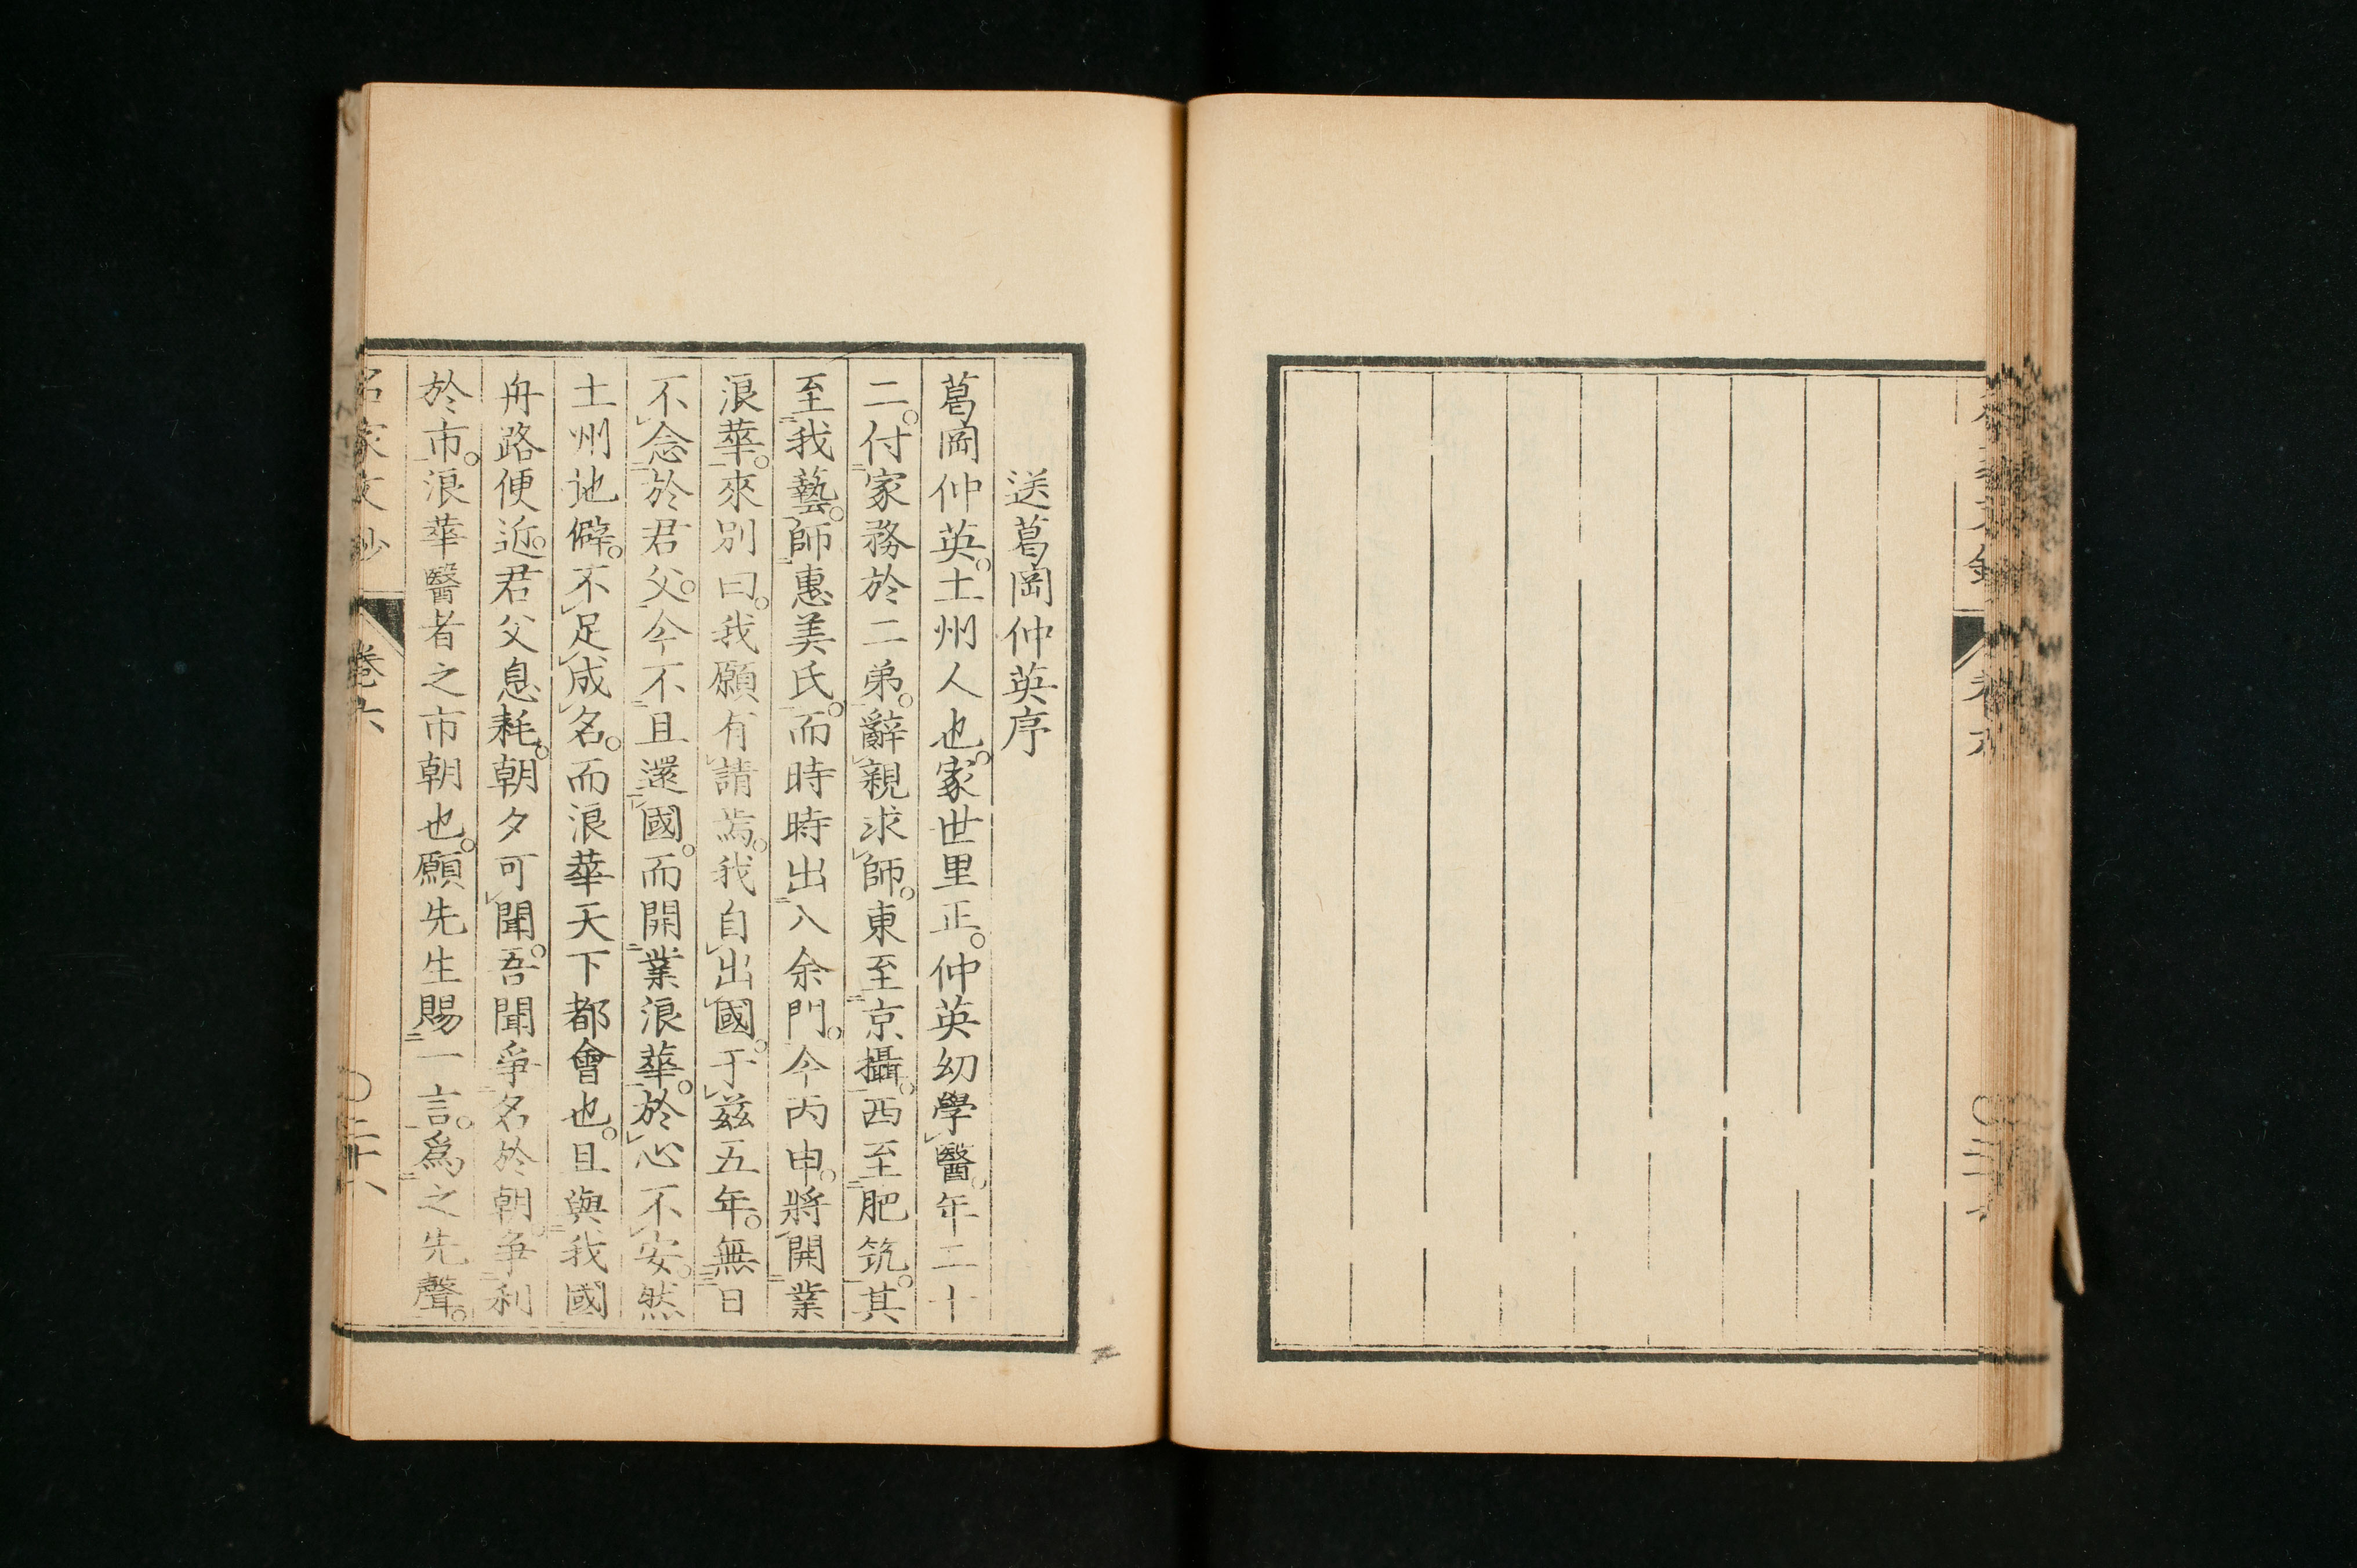 送葛岡仲英序
葛岡仲英。土州人也。家世里正。仲英幼學レ醫。年二十
二。付二家務於二弟。辭レ親求レ師。東至二京攝一。西至二肥筑一。其
至二我藝一。師二惠美氏一。而時時出二入余門一。今丙申。將レ開二業
浪華一。來別曰。我願有レ請焉。我自レ出レ國。于レ茲五年。無三日
不レ念二於君父一。今不二且還一レ國。而開二業浪華一。於レ心不レ安。然
土州地僻。不レ足レ成レ名。而浪華天下都會也。且與二我國
舟路便近。君父息耗。朝夕可レ聞。吾聞爭二名於朝一。爭二利
於市一。浪華醫者之市朝也。願先生賜二一言一。爲二之先聲。
名家文抄
卷六
〇二十八